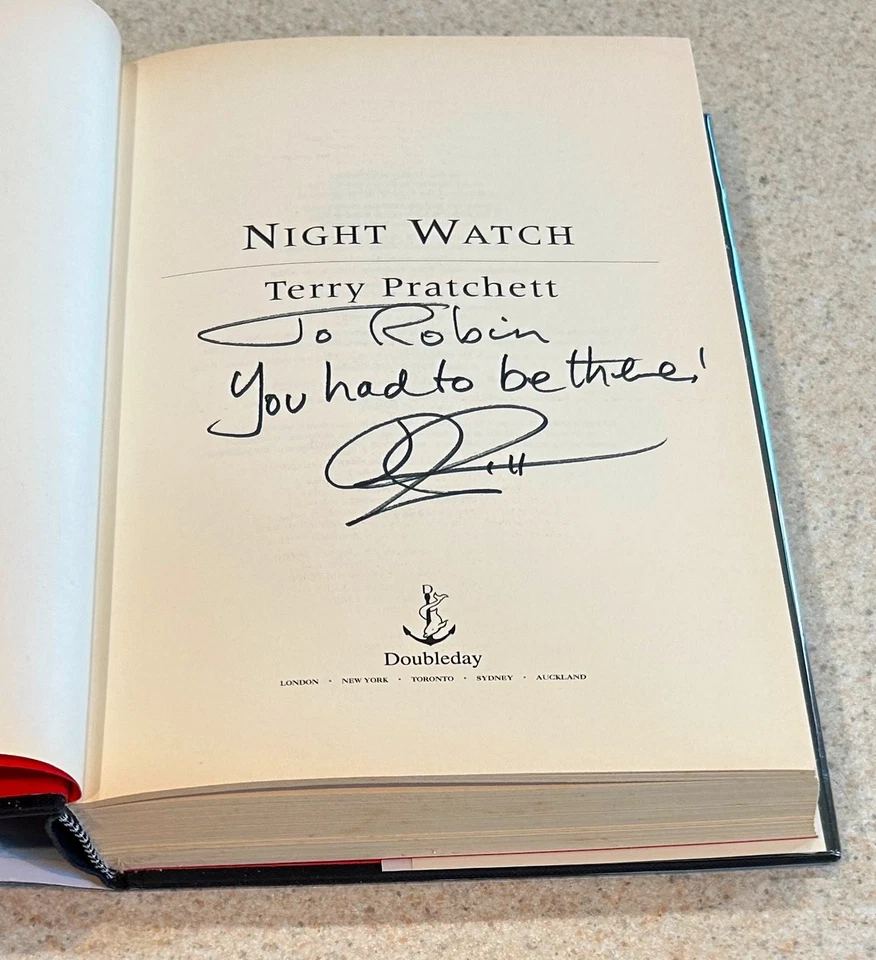 NIGHT WATCH
Terry Pratchett
To Robin
You had to be there!
D
Doubleday
LONDON · NEW YORK · TORONTO · SYDNEY · AUCKLAND